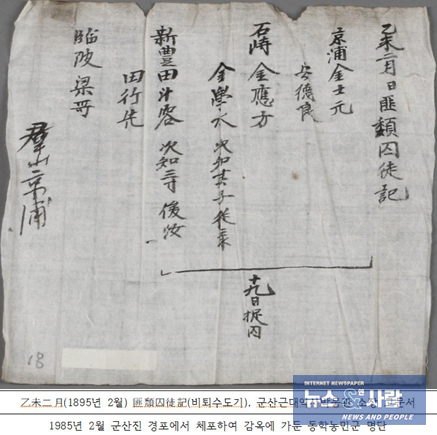 乙未二月日匪類囚徒記
京浦金士元
安德良
石峙金應方
金學水次知其子徒來
新豊田斗容次知三寸後汝
田行先
臨陂梁哥
十九日捉囚
羣山京浦
18
INTERNET NEWSPAPER
뉴스&사람
NEWS AND PEOPLE
乙未二月(1895년 2월) 匪類囚徒記(비퇴수도기), 군산근대역사박물관 소장 고문서
1985년 2월 군산진 경포에서 체포하여 감옥에 가둔 동학농민군 명단